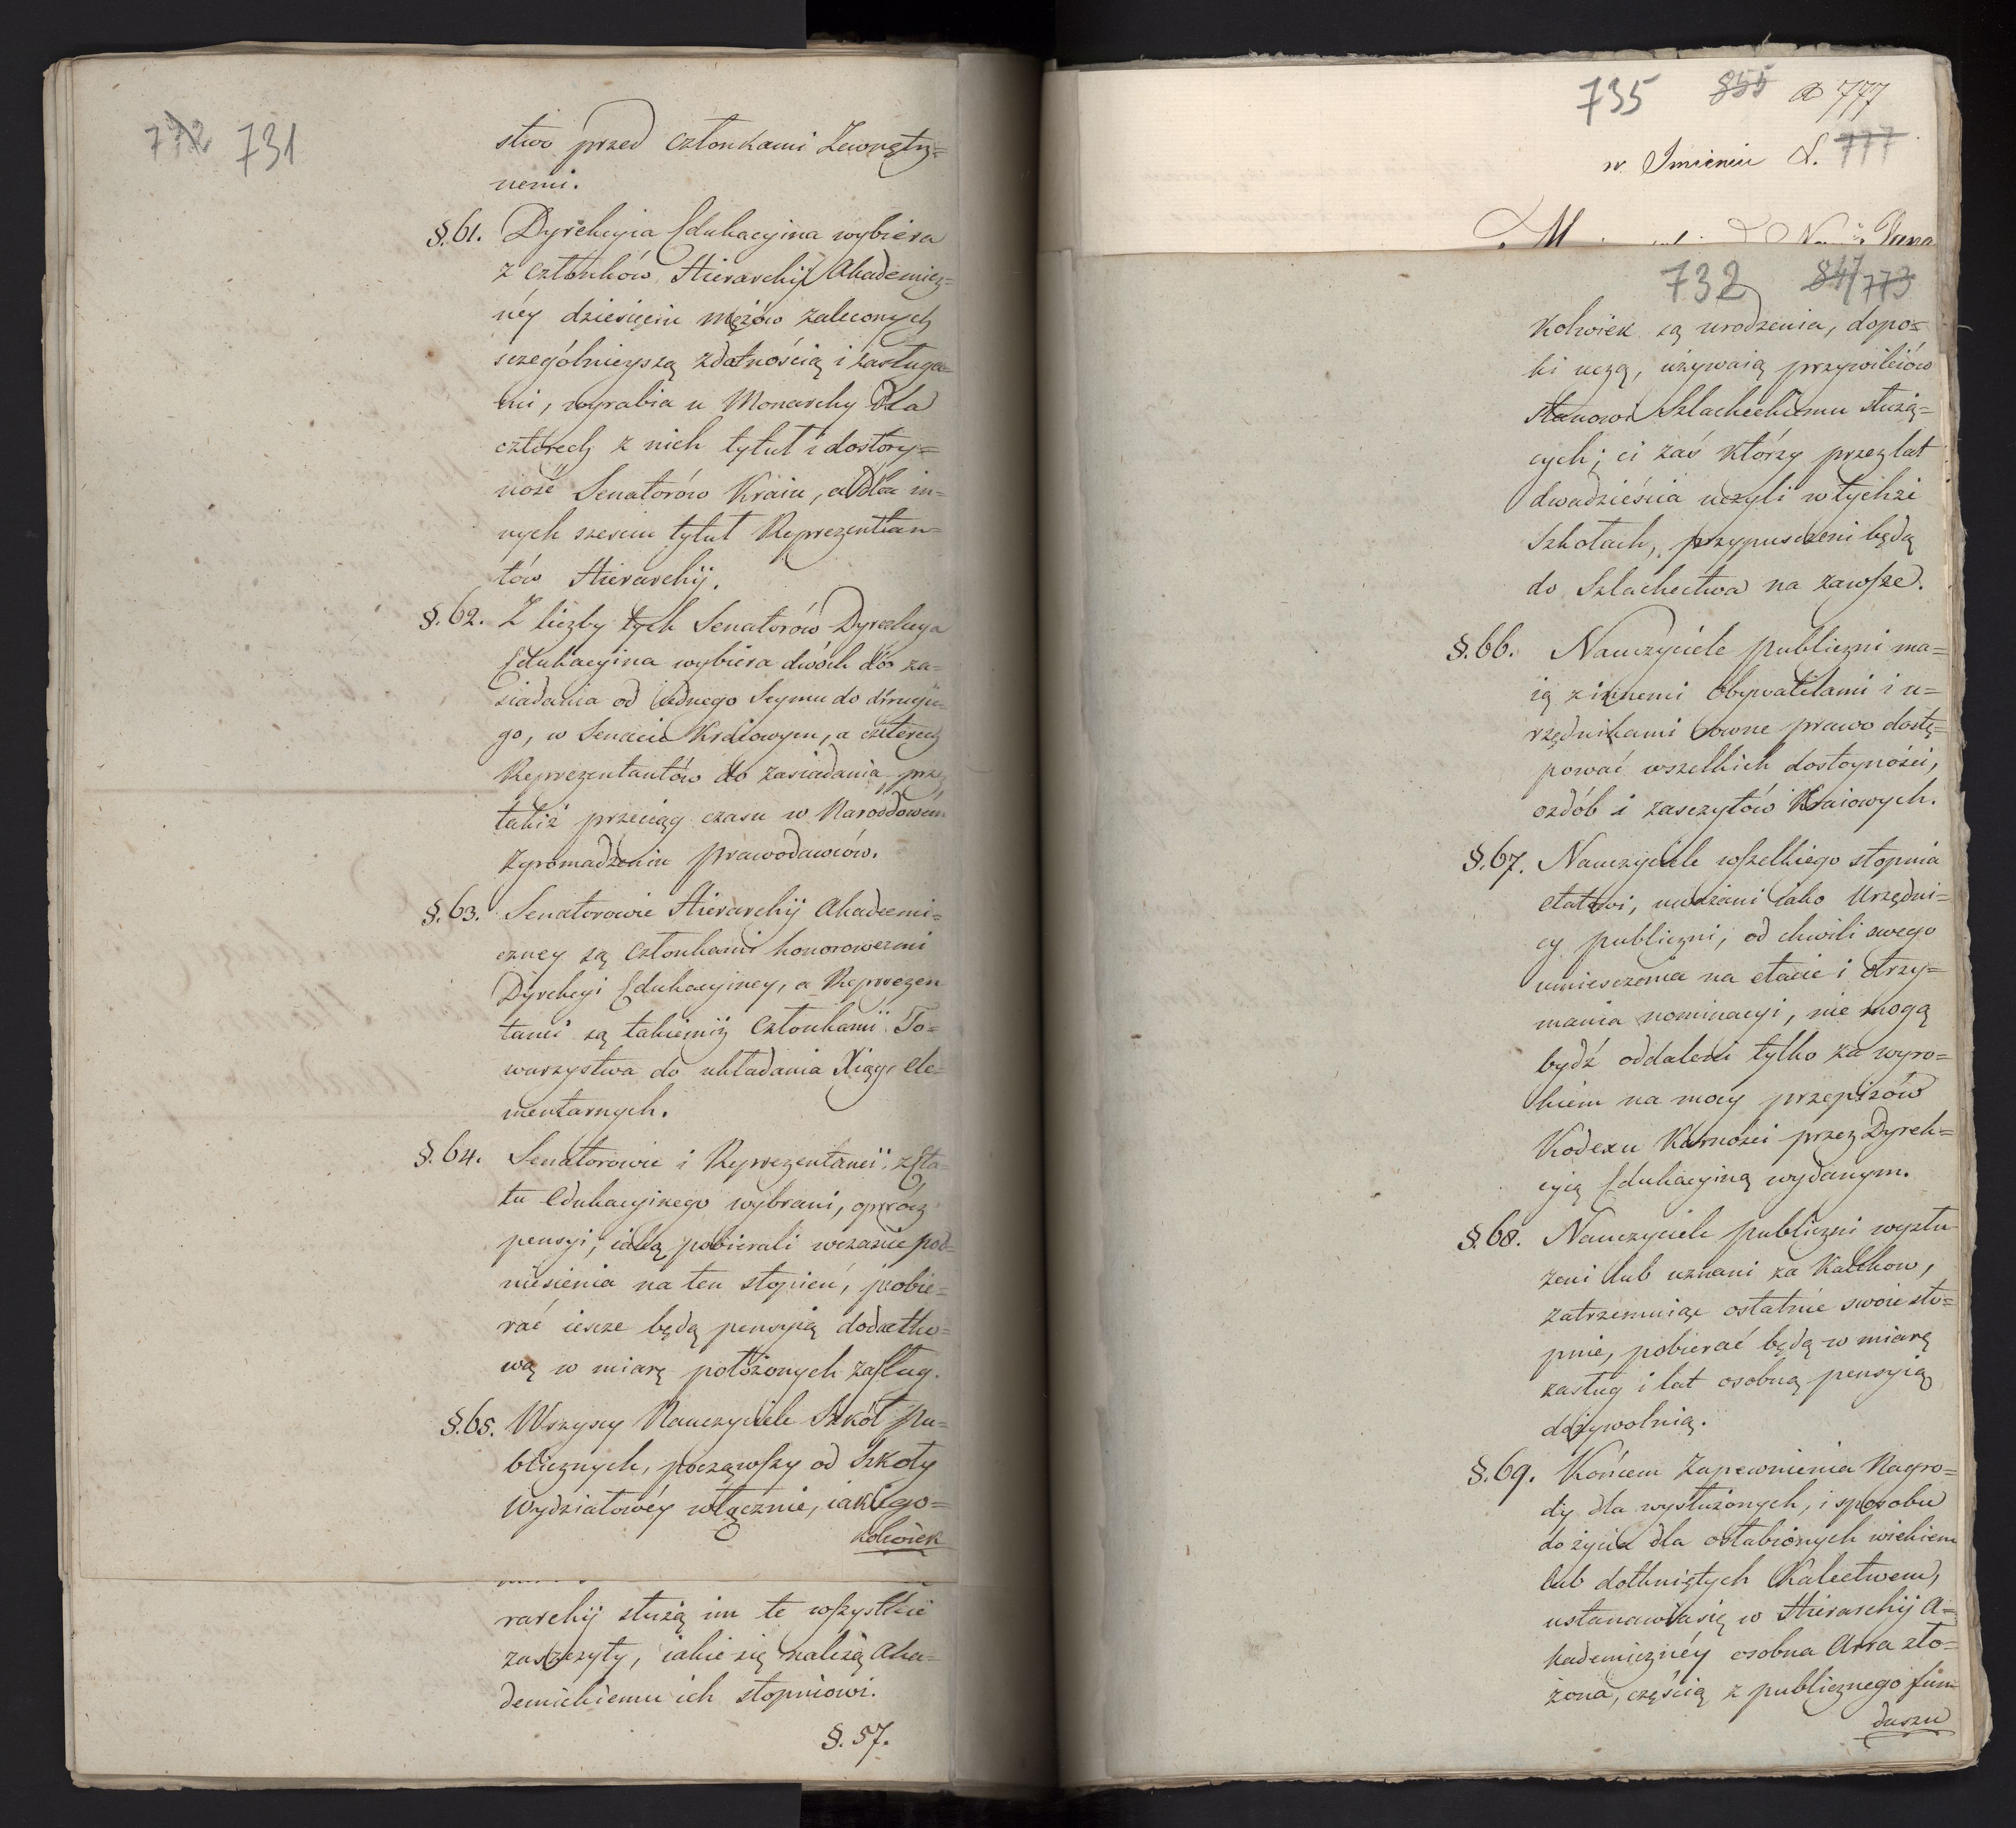 772 731
stwo przed członkami Zewnętrz=
nemi.
§. 61. Dyrekcyia Edukacyina wybiera
z członków Hierarchij Akademicz=
néy dziesięciu mężów zaleconych
szczególnieyszą zdatnością i zasługa=
mi, wyrabia u Monarchy dla
czterech z nich tytuł i dostoy=
ność Senatorów Kraiu, a dla in=
nych sześciu tytuł Reprezentan=
tów Hierarchij.
§. 62. Z liczby tych Senatorów Dyrekcya
Edukacyina wybiera dwóch do za=
siadania od iednego Seymu do drugie=
go, w Senacie Kraiowym, a czterech
Reprezentantów do zasiadania przez
takiż przeciąg czasu w Narodowem
zgromadzeniu prawodawców.
§. 63. Senatorowie Hierarchij Akademi=
czney są członkami honorowemi
Dyrekcyi Edukacyiney, a Reprezen
tanci są takiemiż Członkami To=
warzystwa do układania Xiąg ele=
mentarnych.
§. 64. Senatorowie i Reprezentanci z Eta=
tu edukacyinego wybrani, oprócz
pensyi, iaką pobierali wczasie pod=
niesienia na ten stopień, pobie=
rać iescze będą pensyią dodatko=
wą w miarę położonych zasług.
§. 65. Wszyscy Nauczyciele Szkół pu=
blicznych, począwszy od Szkoły
Wydziałowéy włącznie, iakiego=
kolwiek
rarchij służą im te wszystkie
zasczyty, iakie się należą Aka=
demickiemu ich stopniowi.
§. 57.
735 855 777
w Imieniu 777
732 847 773
kolwiek są urodzenia, dopó=
ki uczą, używaią przywileiów
stanowi Szlacheckiemu służą=
cych; ci zaś którzy przez lat
dwadzieścia uczyli w tychże
Szkołach, przypusczeni będą
do Szlachectwa na zawsze.
§. 66. Nauczyciele publiczni ma=
ią z innemi Obywatelami i u=
rzędnikami równe prawo dostę=
pować wszelkich dostoyności,
ozdób i zasczytów Kraiowych.
§. 67. Nauczyciele wszelkiego stopnia
etatowi, uważani iako Urzędni=
cy publiczni, od chwili swego
umiesczenia na etacie i otrzy=
mania nominacyi, nie mogą
bydź oddaleni tylko za wyro=
kiem na mocy przepisów
Kodexu Karności przez Dyrek=
cyią Edukacyiną wydanym.
§. 68. Nauczyciele publiczni wysłu
żeni lub uznani za Kalekow,
zatrzemuiąc ostatnie swoie sto=
pnie, pobierać będą w miarę
zasług i lat osobną pensyią
dożywotnią.
§. 69. Końcem Zapewnienia Nagro=
dy dla wysłużonych, i sposobu
do życia dla osłabionych wiekiem
lub dotkniętych Kalectwem,
ustanawia się w Hierarchij A=
kademicznéy osobna Massa zło=
żona, częścią z publicznego fun
duszu